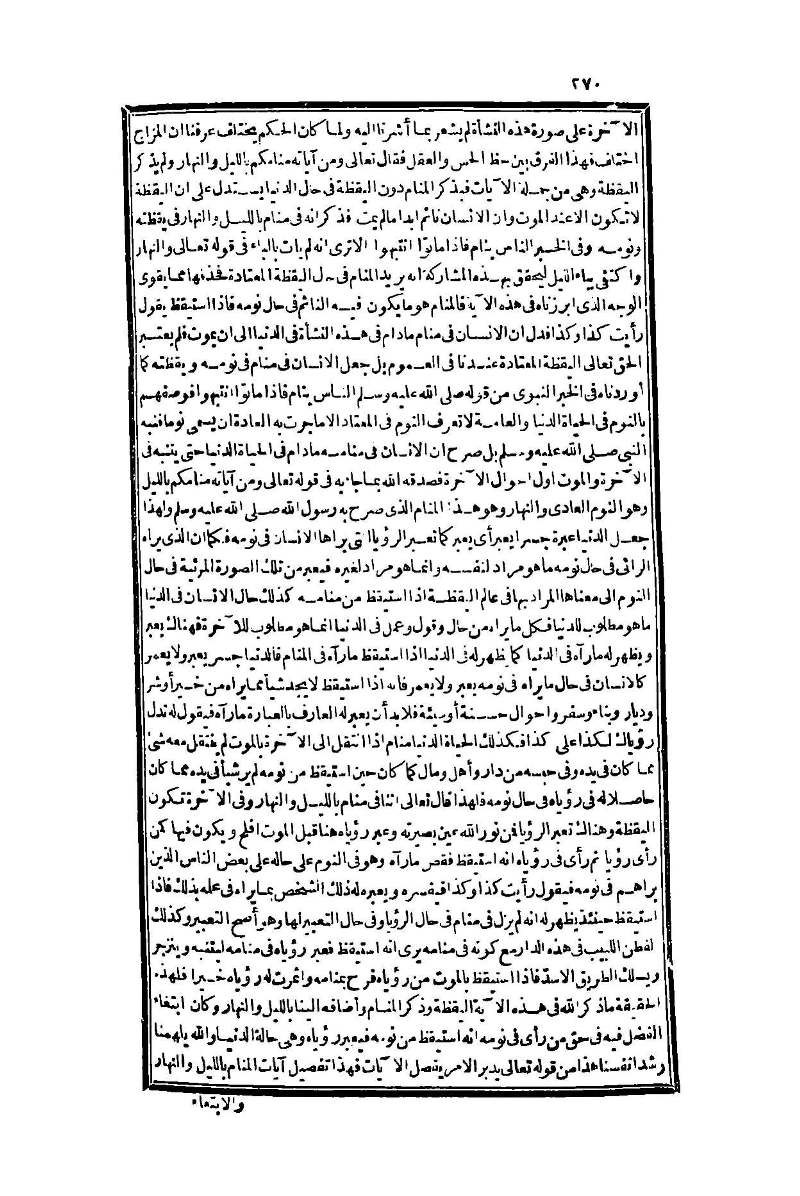 ٢٧٠
الآخرة على صورة هذه النشأة لم يشعر بما أشرنا اليه ولما كان الحكم يختلف عرفنا ان المزاج
اختلف فهذا الفرق بين حظ الحس والعقل فقال تعالى ومن آياته منامكم بالليل والنهار ولم يذكر
اليقظة وهى من جملة الآيات فذكر المنام دون اليقظة فى حال الدنيا يستدل على ان اليقظة
لا تكون الا عند الموت وان الانسان نائم ابدا ما لم يمت فذكر انه فى منام بالليل والنهار فى يقظته
ونومه وفى الخبر الناس ينام فاذا ماتوا انتبهوا الا ترى انه لم يات بالباء فى قوله تعالى والنهار
واكتفى بباء الليل ليحقق بهذه المشاركة انه يريد المنام فى حال اليقظة المعتادة فحذفها مما يقوى
الوجه الذى ابرزناه فى هذه الآية فالمنام هو ما يكون فيه النائم فى حال نومه فاذا استيقظ يقول
رأيت كذا وكذا فدل ان الانسان فى منام مادام فى هذه النشأة فى الدنيا الى ان يموت فلم يعتبر
الحق تعالى اليقظة المعتادة عندنا فى العموم بل جعل الانسان فى منام فى نومه ويقظته كما
أوردناه فى الخبر النبوى من قوله صلى الله عليه وسلم الناس ينام فاذا ماتوا انتبهوا فوصفهم
بالنوم فى الحياة الدنيا والعامة لا تعرف النوم فى المعتاد الا ما جرت به العادة ان يسمى نوما فنبه
النبى صلى الله عليه وسلم بل صرح ان الانسان فى منامه مادام فى الحياة الدنيا حتى ينتبه فى
الآخرة والموت اول احوال الآخرة فصدقه الله بما جاء به فى قوله تعالى ومن آياته منامكم بالليل
وهو النوم العادى والنهار وهو هذا المنام الذى صرح به رسول الله صلى الله عليه وسلم ولهذا
جعل الدنيا عبرة جسرا يعبر أى يعبر كما تعبر الرؤيا التى يراها الانسان فى نومه فكما ان الذى يراه
الرائى فى حال نومه ما هو مراد لنفسه وانما هو مراد لغيره فيعبر من تلك الصورة المرئية فى حال
النوم الى معناها المراد بها فى عالم اليقظة اذا استيقظ من منامه كذلك حال الانسان فى الدنيا
ما هو مطلوب للدنيا فكل ما يراه من حال وقول وعمل فى الدنيا انما هو مطلوب للآخرة فهناك يعبر
ويظهر له ما رآه فى الدنيا كما يظهر له فى الدنيا اذا استيقظ ما رآه فى المنام فالدنيا جسر يعبر ولا يعمر
كالانسان فى حال ما يراه فى نومه يعبر ولا يعمر فانه اذا استيقظ لا يجد شيأ مما يراه من خير أو شر
وديار وبناء وسفر واحوال حسنة أو سيئة فلابد أن يعبر له العارف بالعبارة ما رآه فيقول له تدل
رؤياك لكذا على كذا فكذلك الحياة الدنيا منام اذا انتقل الى الآخرة بالموت لم ينتقل معه شئ
مما كان فى يده وفى حبسه من دار وأهل ومال كما كان حين استيقظ من نومه لم ير شيأ فى يده مما كان
حاصلا له فى رؤياه فى حال نومه فلهذا قال تعالى اننا فى منام بالليل والنهار وفى الآخرة تكون
اليقظة وهناك تعبر الرؤيا فمن نور الله عين بصيرته وعبر رؤياه هنا قبل الموت افلح ويكون فيها كمن
رأى رؤيا ثم رأى فى رؤياه انه استيقظ فقص ما رآه وهو فى النوم على حاله على بعض الناس الذين
يراهم فى نومه فيقول رأيت كذا وكذا فيفسره ويعبره له ذلك الشخص بما يراه فى علمه بذلك فاذا
استيقظ حينئذ يظهر له انه لم يزل فى منام فى حال الرؤيا وفى حال التعبير لها وهو أصح التعبير وكذلك
لفطن اللبيب فى هذه الدار مع كونه فى منامه يرى انه استيقظ فعبر رؤياه فى منامه لينتبه وينزجر
ويسلك الطريق الاسد فاذا استيقظ بالموت حمد رؤياه وفرح بمنامه واثمرت له رؤياه خيرا فلهذه
الحقيقة ما ذكر الله فى هذه الآية اليقظة وذكر المنام وأضافه الينا بالليل والنهار وكان ابتغاء
الفضل فيه فى حق من رأى فى نومه انه استيقظ من نومه فيعبر رؤياه وهى حالة الدنيا والله يلهمنا
رشد انفسنا هذا من قوله تعالى يدبر الامر يفصل الآيات فهذا تفصيل آيات المنام بالليل والنهار
والابتغاء